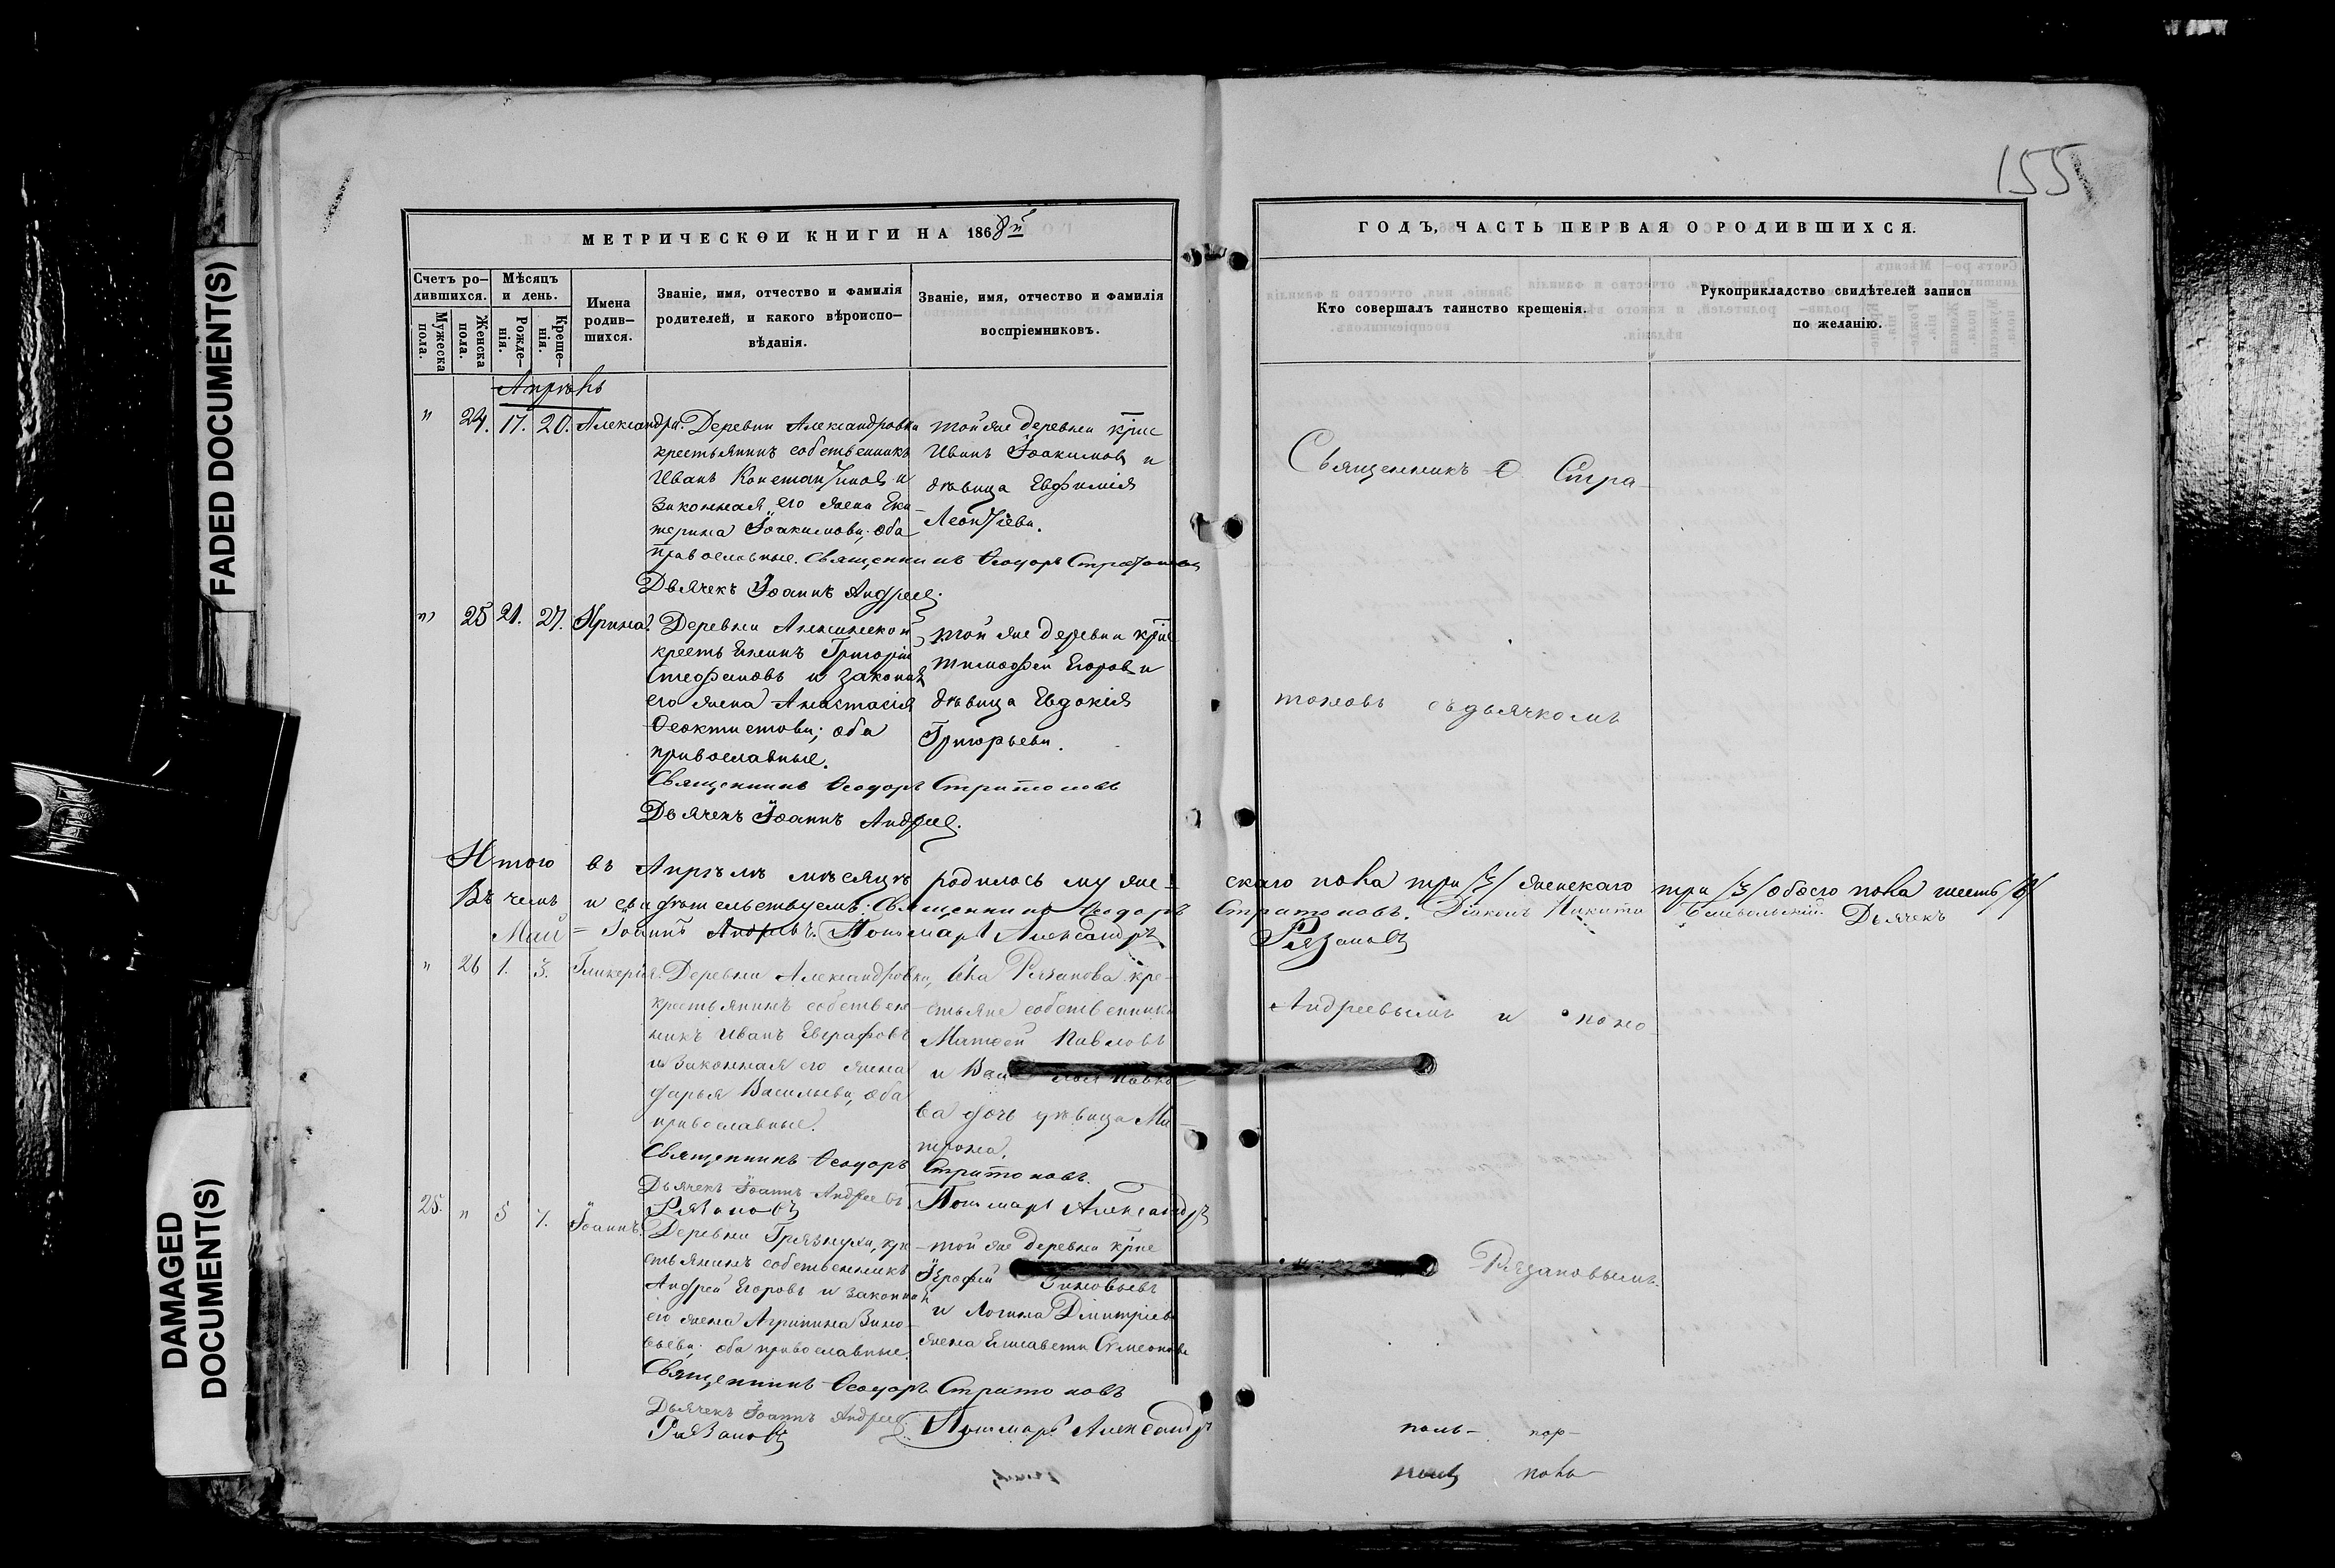 155
МЕТРИЧЕСКОЙ КНИГИ НА 1868й
ГОДЪ, ЧАСТЬ ПЕРВАЯ О РОДИВШИХСЯ.
Счетъ ро-
дившихся.
Мужеска
пола.
Женска
пола.
Мѣсяцъ
и день.
Рожде-
нія.
Креще-
нія.
Имена
родив-
шихся.
Званіе, имя, отчество и фамилія
родителей, и какого вѣроиспо-
вѣданія.
Званіе, имя, отчество и фамилія
воспріемниковъ.
Кто совершалъ таинство крещенія.
Рукоприкладство свидѣтелей записи
по желанію.
Апрѣль
" 24. 17. 20. Александра.
Деревни Александровки
крестьянинъ собственникъ
Иванъ Константиновъ и
законная его жена Ека-
терина Іоакимова; оба
православные. Священникъ Ѳеодоръ Стратоновъ
Дьячекъ Іоаннъ Андреевъ.
той же деревни
Иванъ Іоакимовъ и
дѣвица Евфимія
Леонтіева.
Священникъ Ѳ Стра-
" 25 21. 27. Ирина.
Деревни
крестьянинъ Григорій
Стефановъ и законная
его жена Анастасія
Ѳеоктистова; оба
православные.
Священникъ Ѳеодоръ Стратоновъ
Дьячекъ Іоаннъ Андреевъ.
той же деревни
Тимоѳей Егоровъ и
дѣвица Евдокія
Григорьева.
тоновъ съ дьячкомъ
Итого въ Апрѣлѣ мѣсяцѣ родилось муже-
скаго пола три /3/ женскаго три /3/ обоего пола шесть /6/
Въ чемъ и свидѣтельствуемъ: Священникъ Ѳеодоръ
Стратоновъ. Діаконъ Никита Дьячекъ
Май
Іоаннъ Андреевъ. Пономарь Александръ
Рязановъ
" 26 1. 3. Гликерія.
Деревни Александровки,
крестьянинъ собствен-
никъ Иванъ Евграфовъ
и законная его жена
Дарья Васильева, оба
православные.
Священникъ Ѳеодоръ Стратоновъ.
Дьячекъ Іоаннъ Андреевъ Пономарь Александръ
Рязановъ
села Рязанова кре-
стьяне собственники
Матвей Павловъ
и
ва дочь дѣвица Ма-
трона.
Андреевымъ и поно-
25. " 5 7. Іоаннъ.
Деревни Грязнухи, кре-
стьянинъ собственникъ
Андрей Егоровъ и законная
его жена Агрипина Зино-
вьева; оба православные.
Священникъ Ѳеодоръ Стратоновъ
Дьячекъ Іоаннъ Андреевъ. Пономарь Александръ
Рязановъ
той же деревни
Зиновьевъ
и Логина Дмитріева
жена Елисавета Симеонова
Рязановымъ.